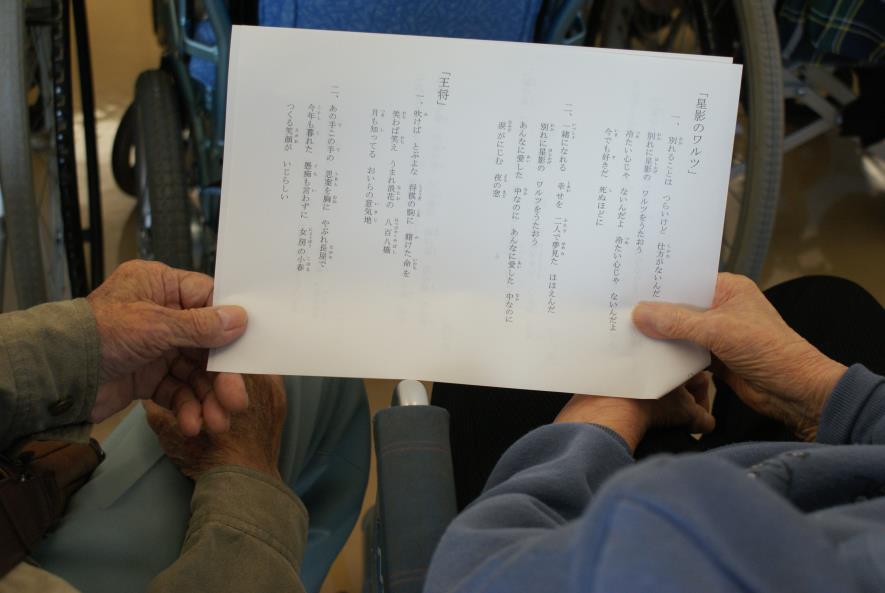 「星影のワルツ」
一、別れることは つらいけど 仕方がないんだ
別れに星影の ワルツをうたおう
冷たい心じゃ ないんだよ 冷たい心じゃ ないんだよ
今でも好きだ 死ぬほどに
二、一緒になれる 幸せを 二人で夢見た ほほえんだ
別れに星影の ワルツをうたおう
あんなに愛した 中なのに あんなに愛した 中なのに
涙がにじむ 夜の窓
「王将」
一、吹けば とぶよな 将棋の駒に 賭けた命を
笑わば笑え うまれ浪花の 八百八橋
月も知ってる おいらの意気地
二、あの手この手の 思案を胸に やぶれ長屋で
今年も暮れた 愚痴も言わずに 女房の小春
つくる笑顔が いじらしい